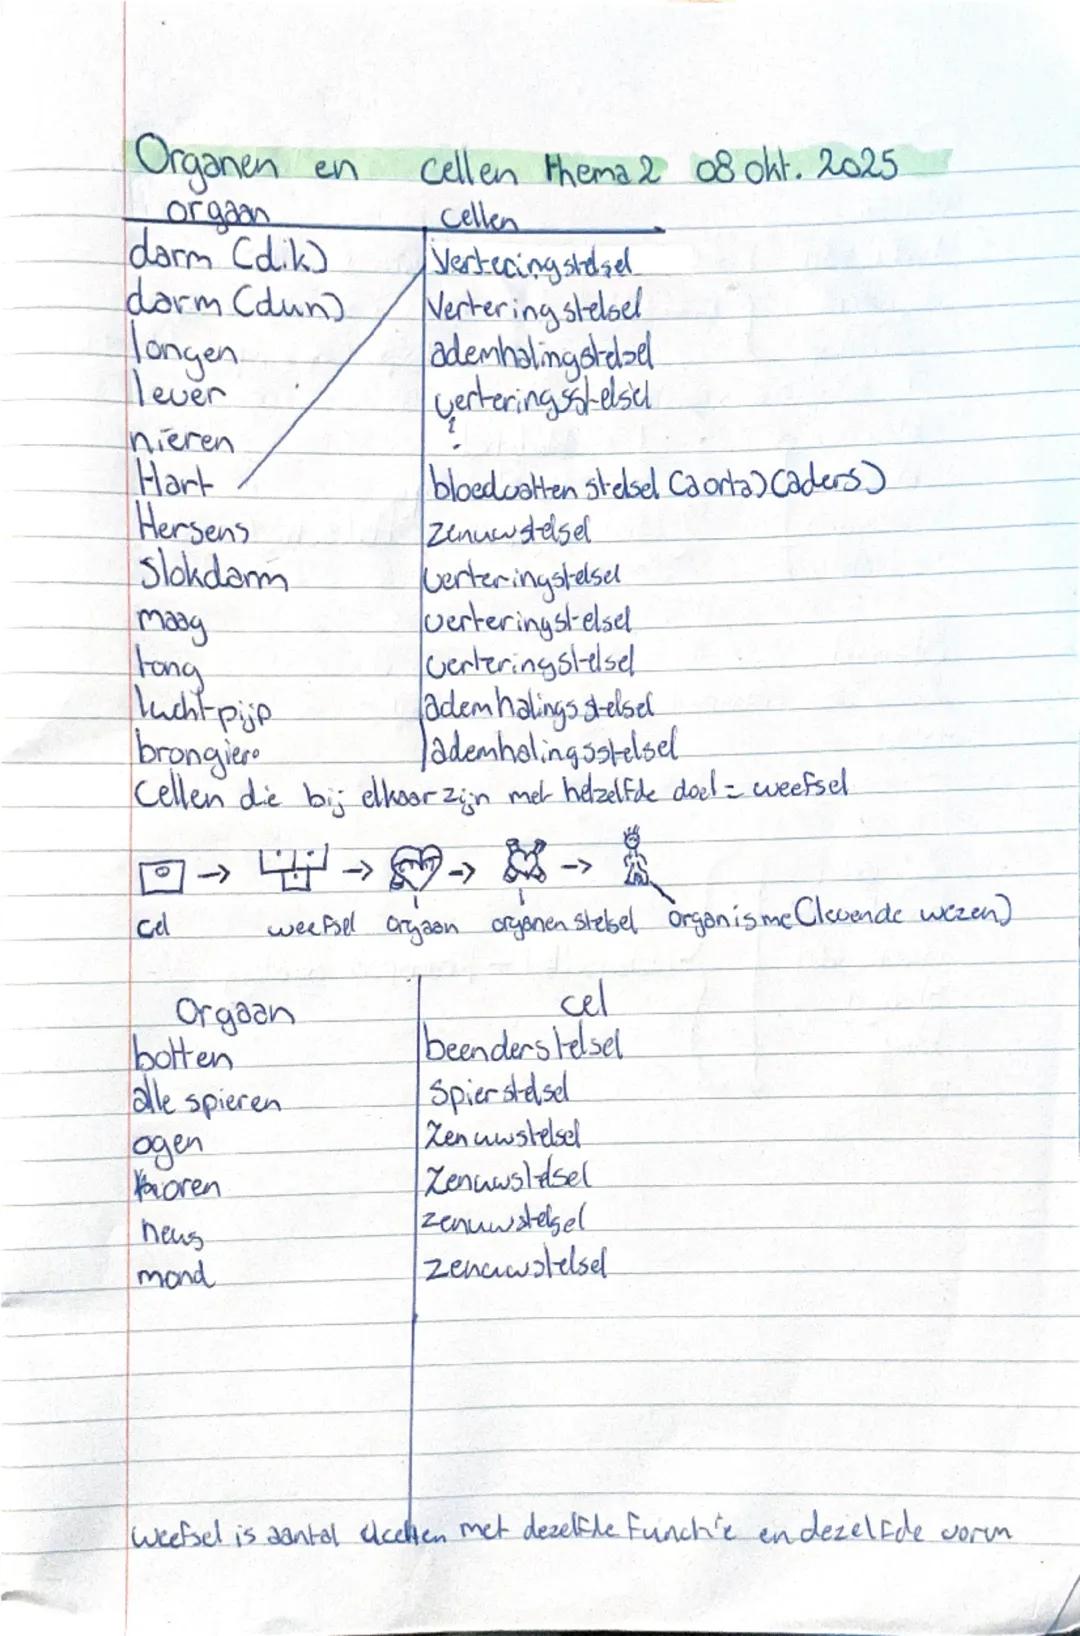 Organen en cellen thema 2 08 okt. 2025
orgaan cellen
darm (dik) Verteringstelsel
darm (dun) Vertering stelsel
longen ademhalingstelsel
lever verteringsstelsel
nieren ?
Hart bloedvatten stelsel (aorta) (aders)
Hersens Zenuwstelsel
Slokdarm verteringstelsel
maag verteringstelsel
tong verteringstelsel
luchtpijp ademhalings stelsel
brongiero ademhalingsstelsel
Cellen die bij elkaar zijn met hetzelfde doel = weefsel
→ → → →
cel weefsel orgaan organen stelsel organisme (levende wezen)
Orgaan cel
botten beenderstelsel
alle spieren Spierstelsel
ogen Zenuwstelsel
oren Zenuwstelsel
neus zenuwstelsel
mond zenuwstelsel
weefsel is aantal cellen met dezelfde functie en dezelfde vorm